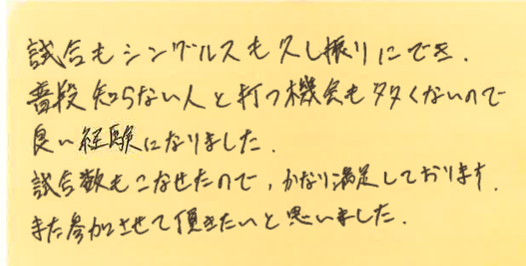 試合もシングルスも久し振りにでき.
普段知らない人と打つ機会も多くないので
良い経験になりました.
試合数もこなせたので,かなり満足しております.
また参加させて頂きたいと思いました.